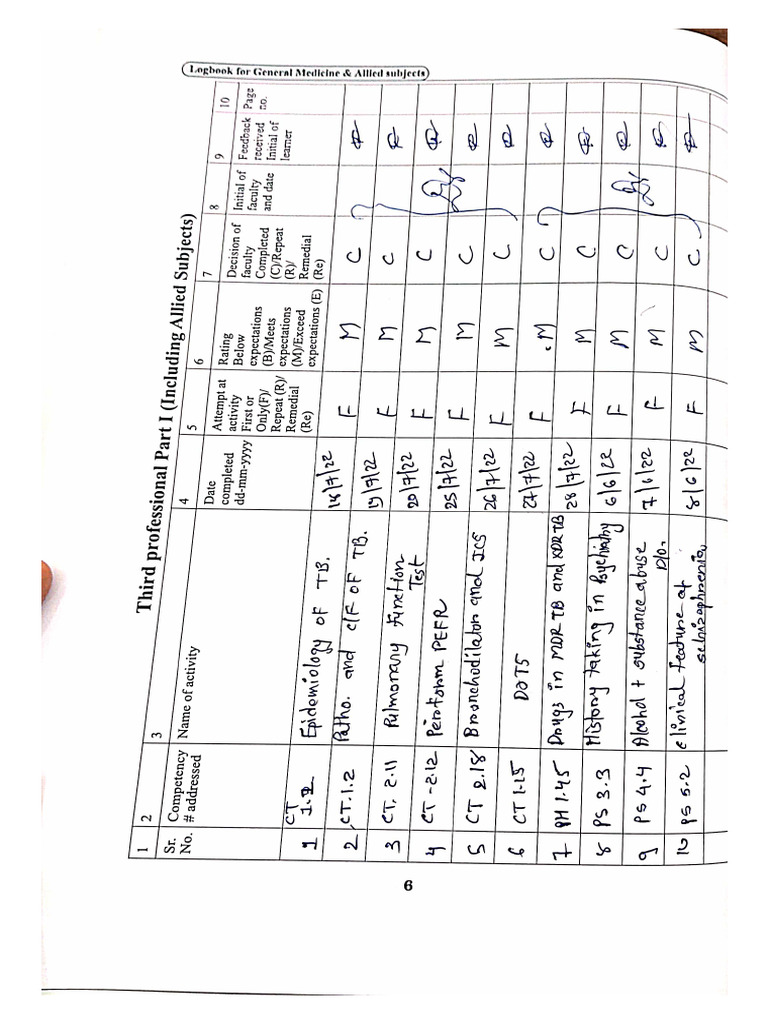 Logbook for General Medicine & Allied subjects
Third professional Part I (Including Allied Subjects)
1 2 3 4 5 6 7 8 9 10
Sr. No. Competency # addressed Name of activity Date completed dd-mm-yyyy Attempt at activity First or Only(F)/ Repeat (R)/ Remedial (Re) Rating Below expectations (B)/Meets expectations (M)/Exceed expectations (E) Decision of faculty Completed (C)/Repeat (R)/ Remedial (Re) Initial of faculty and date Feedback received Initial of learner Page no.
1 CT 1.2 Epidemiology OF TB. 18/7/22 F M C
2 CT.1.2 Patho. and C/F OF TB. 19/7/22 F M C
3 CT. 2.11 Pulmonary Function Test 20/7/22 F M C
4 CT-2.12 Peroform PEFR 25/7/22 F M C
5 CT 2.18 Bronchodilaton and ICS 26/7/22 F M C
6 CT 1.15 DOTS 27/7/22 F M C
7 PH 1.45 Drugs in MDR TB and XDR TB 28/7/22 F M C
8 PS 3.3 History taking in Psychiatry 6/6/22 F M C
9 PS 4.4 Alcohol + substance abuse D/O. 7/6/22 F M C
10 PS 5.2 clinical feature of schizophrenia 8/6/22 F M C.
6